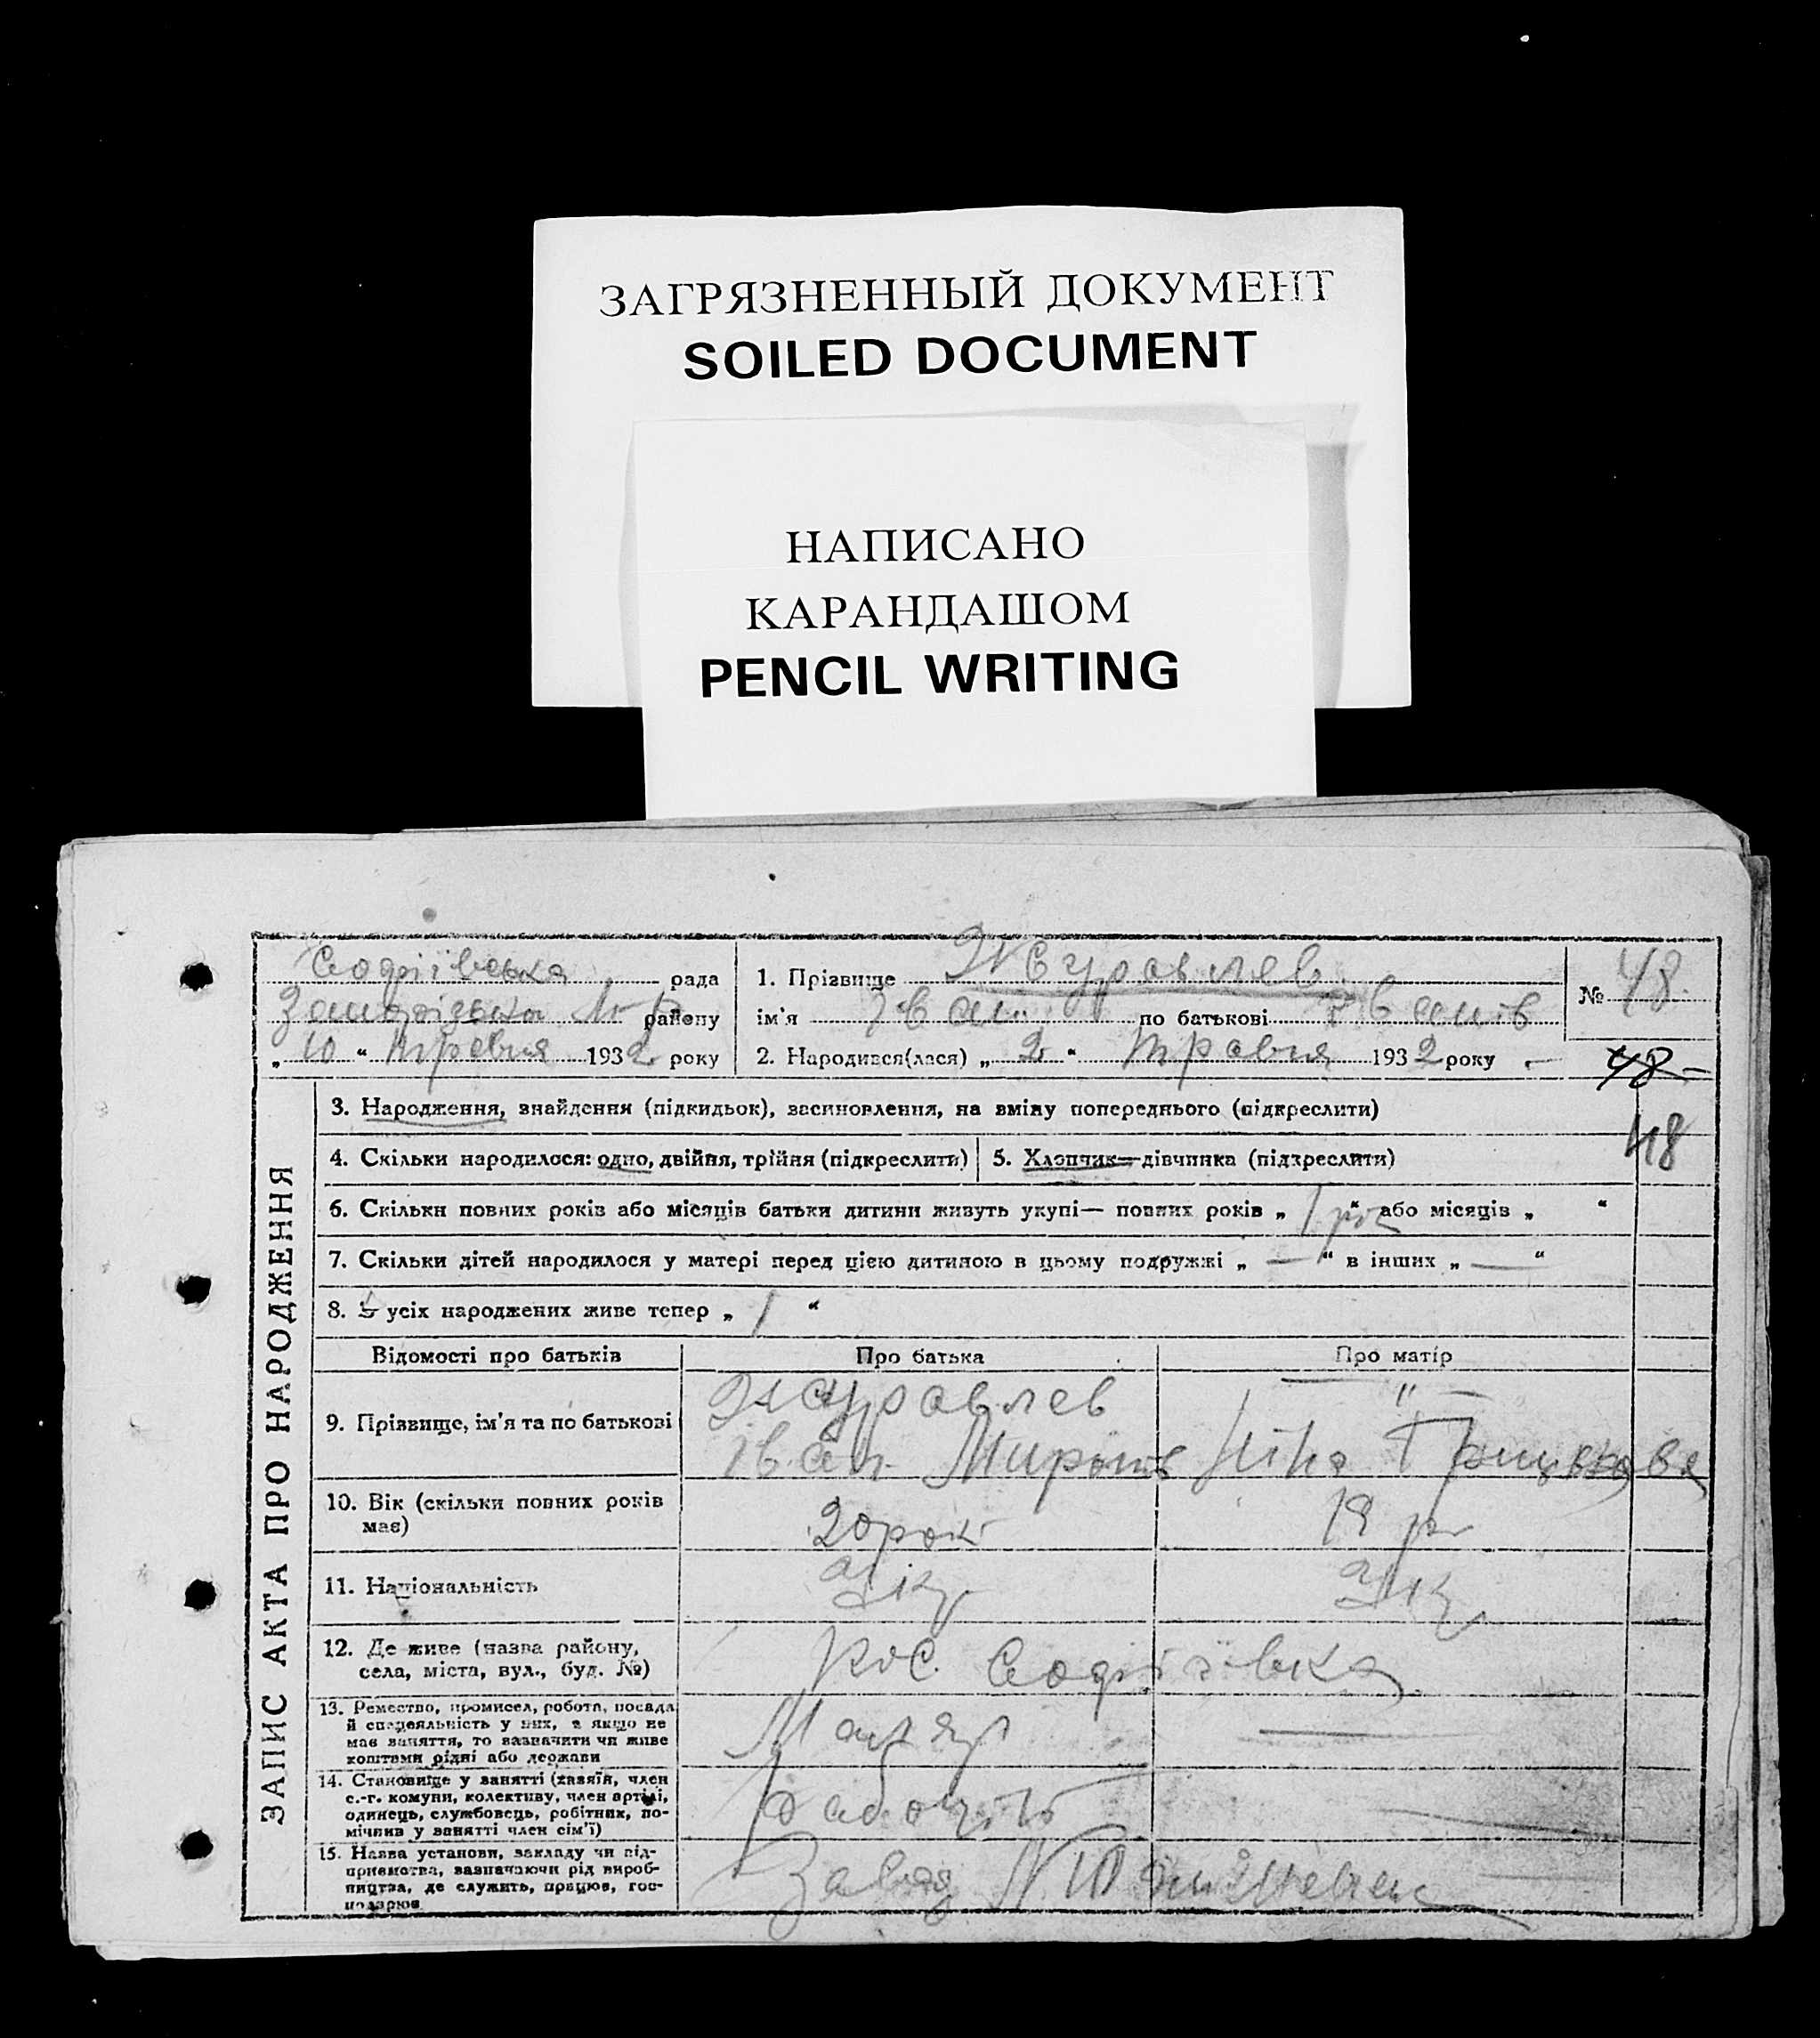 ЗАГРЯЗНЕННЫЙ ДОКУМЕНТ
SOILED DOCUMENT
НАПИСАНО
КАРАНДАШОМ
PENCIL WRITING
Софіївська рада
району
„ 10 “ травня 1932 року
1. Прізвище Журавлев
ім'я Іван по батькові Іванів
2. Народився(лася) „ 2 “ травня 1932 року
№ 48.
48
48
ЗАПИС АКТА ПРО НАРОДЖЕННЯ
3. Народження, знайдення (підкидьок), всиновлення, на зміну попереднього (підкреслити)
4. Скільки народилося: одно, двійня, трійня (підкреслити)
5. Хлопчик—дівчинка (підкреслити)
6. Скільки повних років або місяців батьки дитини живуть укупі— повних років „ 1 рок “ або місяців „ “
7. Скільки дітей народилося у матері перед цією дитиною в цьому подружжі „ — “ в інших „ — “
8. З усіх народжених живе тепер „ 1 “
Відомості про батьків
Про батька
Про матір
9. Прізвище, ім'я та по батькові
Журавлев
Іван Миронів
"
Ніна
10. Вік (скільки повних років
має)
20 рок
18 р
11. Національність
Укр
Укр
12. Де живе (назва району,
села, міста, вул., буд. №)
Софіївка
13. Ремество, промисел, робота, посада
й спеціяльність у них, а якщо не
має заняття, то зазначити чи живе
коштами рідні або держави
Маляр
—
14. Становище у занятті (хазяїн, член
с.-г. комуни, колективу, член артілі,
одинець, службовець, робітник, по-
мічник у занятті член сім'ї)
рабочий
15. Назва установи, закладу чи під-
приємства, зазначаючи рід вироб-
ництва, де служить, працює, гос-
подарює
Завод